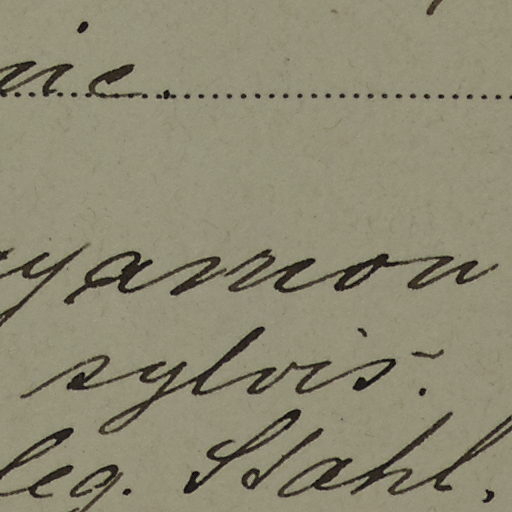 nic.
yamon
sylvis.
leg. Stahl.